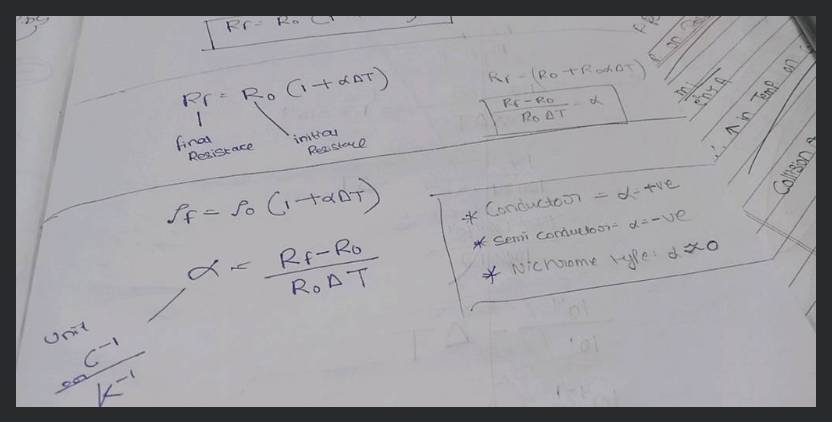 Rf = Ro (1
Rf = Ro (1+αΔT)
final Resistace
initial Resistace
Rf = (Ro + RoαΔT)
Rf - Ro / Ro ΔT = α
ρf = ρo (1+αΔT)
α = Rf - Ro / Ro Δ T
Unit
C⁻¹
or
K⁻¹
* Conductoor = α = +ve
* Semi conductoor = α = -ve
* Nichrome type: α ≈ 0
∴ ↑ in Temp on
Collision